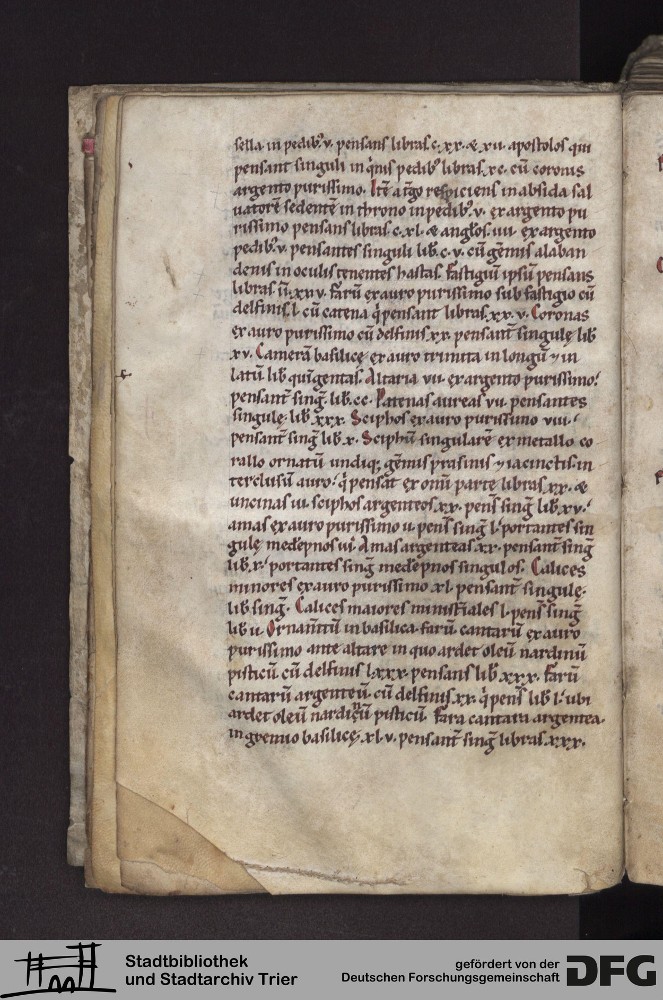 sella. in pedib; v. pensans libras. c.xx. & xii. apostolos qui
pensant singuli in q̇nis pedib; libras. xc. cū coronis
argento purissimo. Itē a tgo respiciens in absida sal
uatorē sedentē in throno in pedib; v. ex argento pu
rissimo pensans libras. c.xl. & angłos. iiii. ex argento
pedib; v. pensantes singuli lib̄. c.v. cū gēmis alaban
denis in oculis tenentes hastas. Fastigiū ipsū pensans
libras. ii. xxv. farū ex auro purissimo sub fastigio cū
delfinis. l. cū catena q̇ pensant libras. xx.v. Coronas
ex auro purissimo cū delfinis. xx. pensant̄ singulę lib̄
xv. Camerā basilicę ex auro trimita in longū ⁊ in
latū lib̄ quīgentas. Altaria vii. ex argento purissimo.
pensant̄ sinḡ. lib̄. cc. Patenas aureas vii. pensantes
singulę. lib̄. xxx. Sciphos ex auro purissimo viii.
pensant̄ sinḡ lib̄. x. Sciphū singularē ex metallo co
rallo ornatū undiq; gēmis prasinis ⁊ iacinctis. in
terclusū auro. q̇ pensat ex om̄i parte libras. xx. &
uncinas iii. sciphos argenteos. xx. pens̄ sinḡ lib̄. xv.
amas ex auro purissimo ii. pens̄ sinḡ l. portantes sin
gulę medēpnos iii. Amas argenteas. xx. pensant̄ sinḡ
lib̄. x. portantes sinḡ medēpnos singulos. Calices
minores ex auro purissimo xl. pensant̄ singulę.
lib̄ sinḡ. Calices maiores minist̄iales l. pens̄ sinḡ
lib̄ ii. Ornam̄tū in basilica. farū cantarū ex auro
purissimo ante altare in quo ardet oleū nardinū
pisticū cū delfinis lxxx. pensans lib̄ xxx. Farū
cantarū argenteū. cū delfinis. xx. q̇ pens̄ lib̄ l. ubi
ardet oleū nardicū pisticū. Fara cantara argentea.
in gremio basilicę. xl.v. pensant̄ sinḡ libras. xxx.
Stadtbibliothek
und Stadtarchiv Trier
gefördert von der
Deutschen Forschungsgemeinschaft
DFG